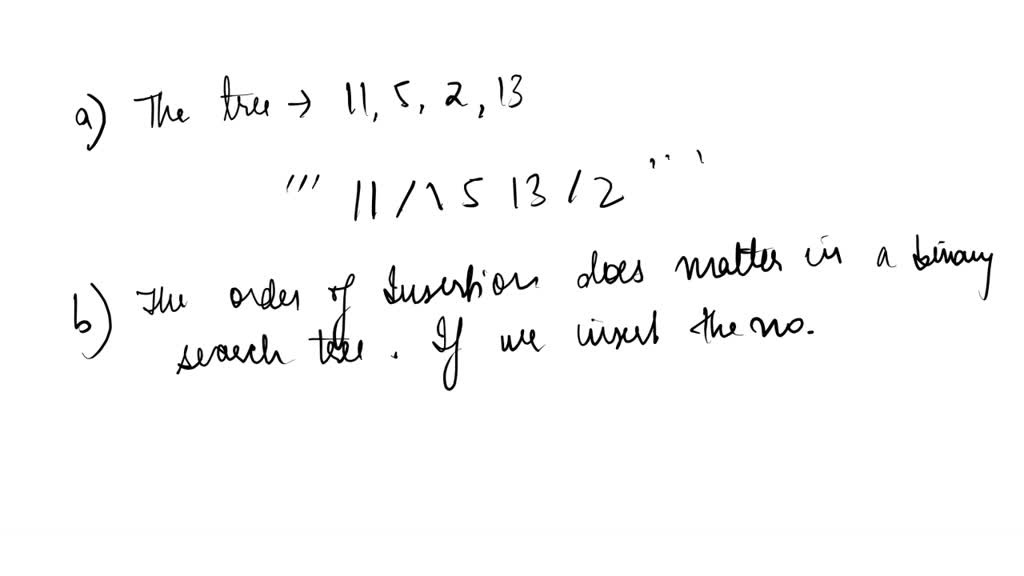 a) The tree → 11, 5, 2, 13
''' 11 / \ 5 13 / 2 ''''
b) The order of Insertion does matter in a binary
search tree. If we insert the no.